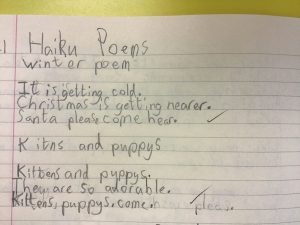 Haiku Poems
Winter poem
It is getting cold.
Christmas is getting nearer.
Santa please come hear.
Kitns and puppys
Kittens and puppys.
They are so adorable.
Kittens, puppys. come. pleas.